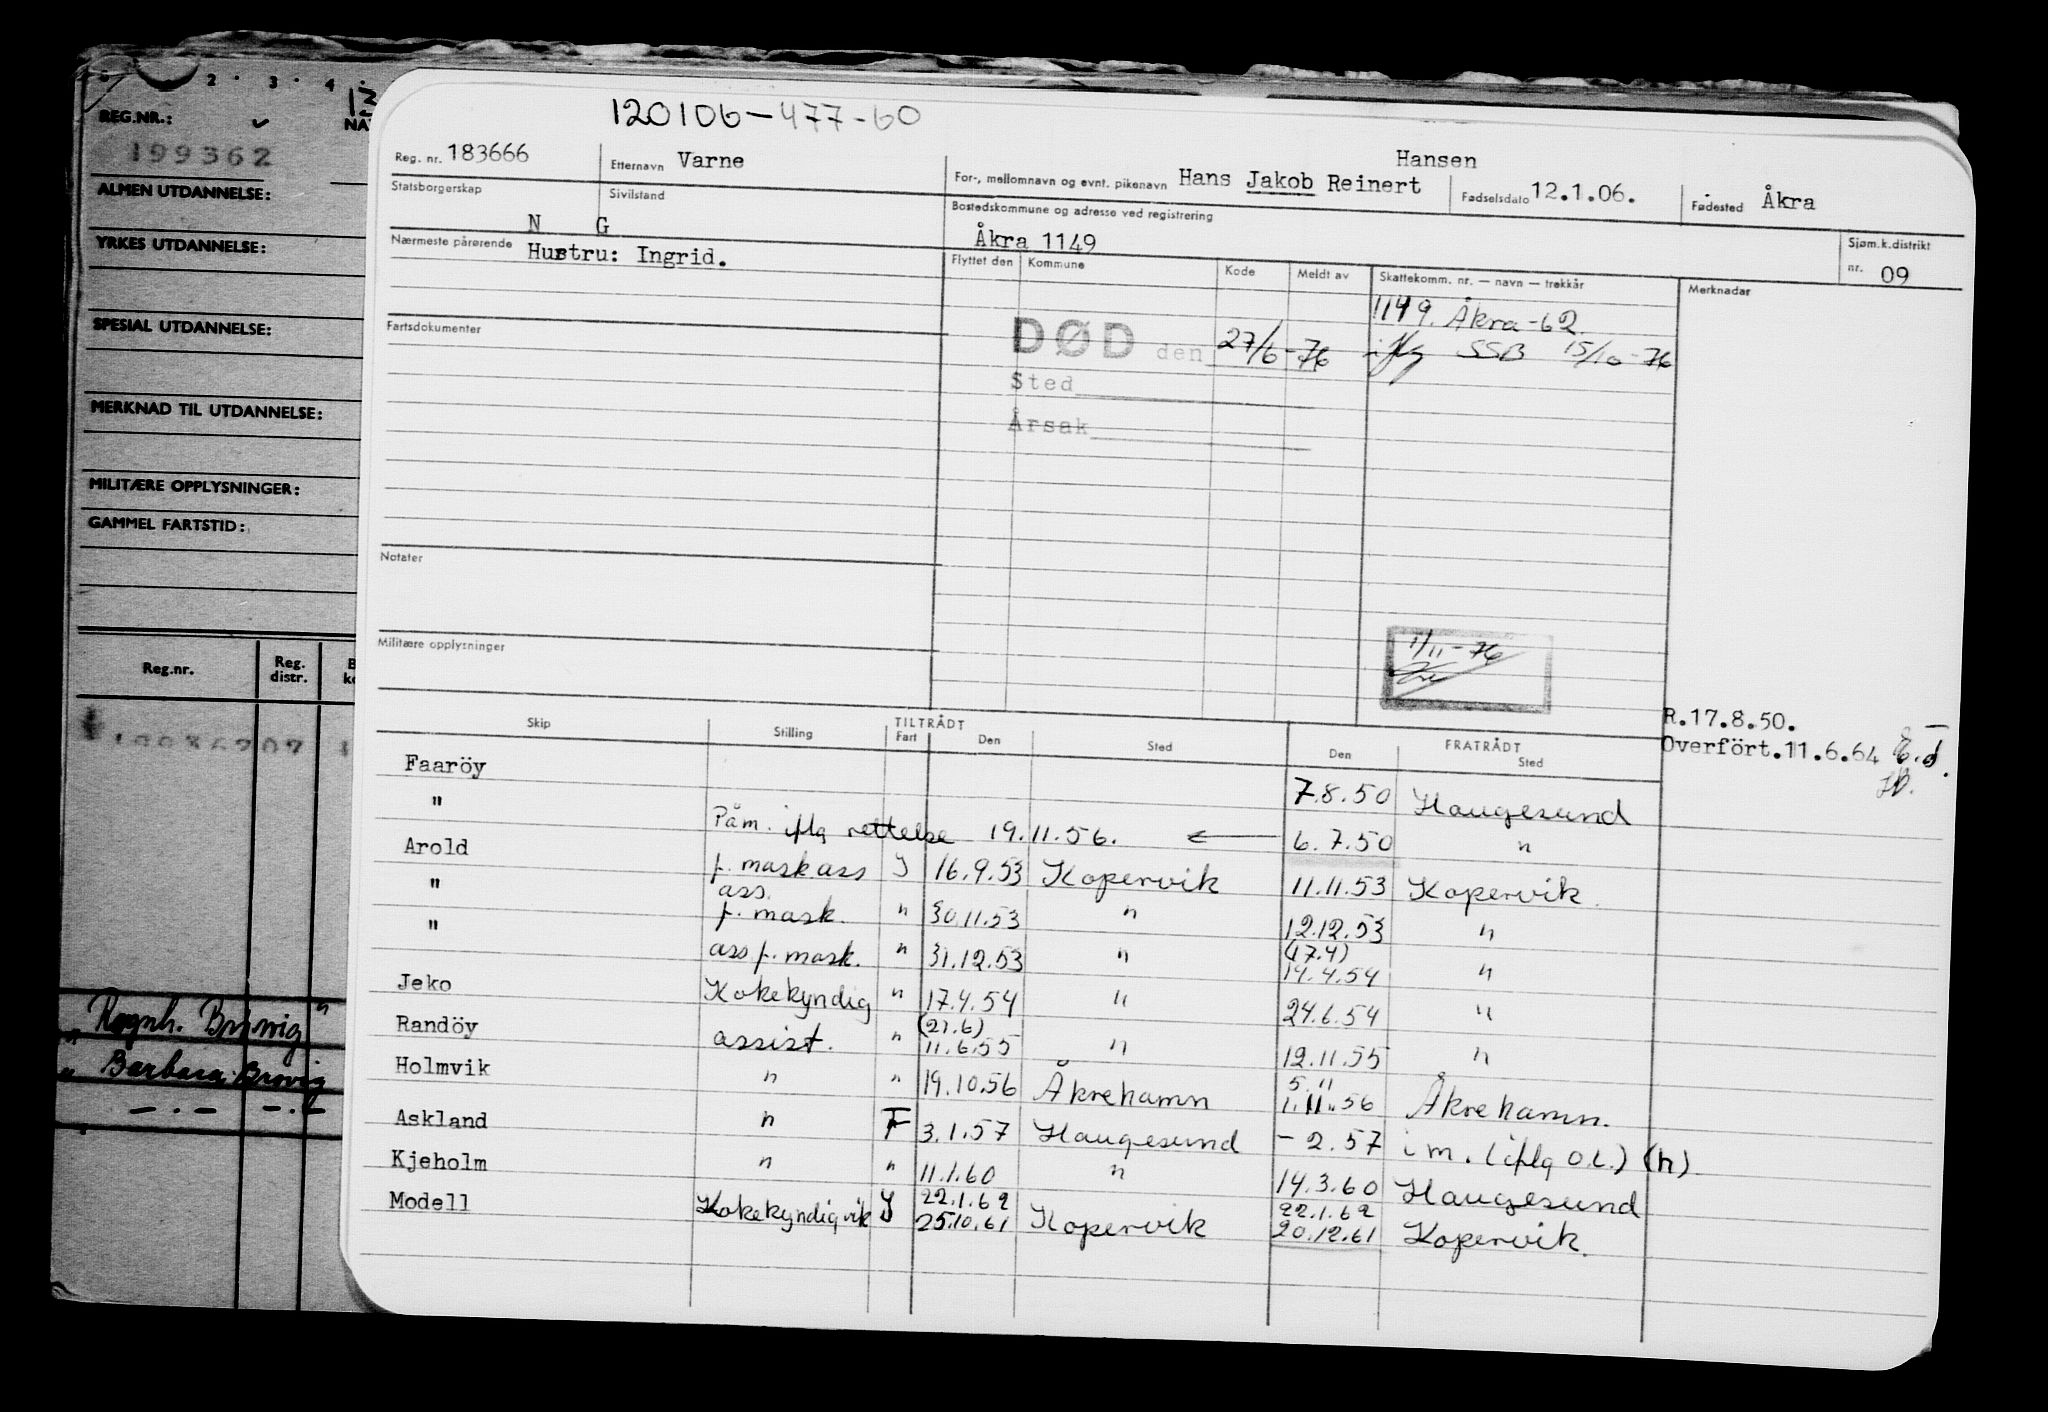 2 · 3 · 4 ·
REG.NR.:
199362
ALMEN UTDANNELSE:
YRKES UTDANNELSE:
SPESIAL UTDANNELSE:
MERKNAD TIL UTDANNELSE:
MILITÆRE OPPLYSNINGER:
GAMMEL FARTSTID:
Reg.nr. Reg. distr.
" Ragnh. Brøvig "
" Barbara Brøvig
120106-477-60
Reg. nr. 183666 Etternavn Varne For-, mellomnavn og evnt. pikenavn Hans Jakob Reinert Hansen Fødselsdato 12.1.06. Fødested Åkra
Statsborgerskap N Sivilstand G Bostedskommune og adresse ved registrering Åkra 1149 Sjøm.k.distrikt nr. 09
Nærmeste pårørende Hustru: Ingrid.
Flyttet den Kommune Kode Meldt av Skattekomm. nr. — navn — trekkår Merknader
1149. Åkra -62.
Fartsdokumenter
DØD den 27/6-76 iflg SSB 15/10-76
Sted
Årsak
Notater
Militære opplysninger
11/11-76
R.17.8.50.
Overfört.11.6.64
Skip Stilling TILTRÅDT Fart Den Sted FRATRÅDT Den Sted
Faaröy 7.8.50 Haugesund
" Påm. iflg rettelse 19.11.56. ← 6.7.50 "
Arold f. mask ass J 16.9.53 Kopervik 11.11.53 Kopervik.
" ass. f. mask. " 30.11.53 " 12.12.53 "
" ass f. mask. " 31.12.53 " (17.4) 14.4.54 "
Jeko Kokekyndig " 17.4.54 " 24.6.54 "
Randöy assist. " (21.6) 11.6.55 " 12.11.55 "
Holmvik " " 19.10.56 Åkrehamn 5.11 1.11.56 Åkrehamn.
Askland " F 3.1.57 Haugesund - 2.57 i m. (iflg o.l.) (h)
Kjeholm " " 11.1.60 " 14.3.60 Haugesund
Modell Kokekyndig vik J 22.1.62 25.10.61 Kopervik 22.1.62 20.12.61 Kopervik.